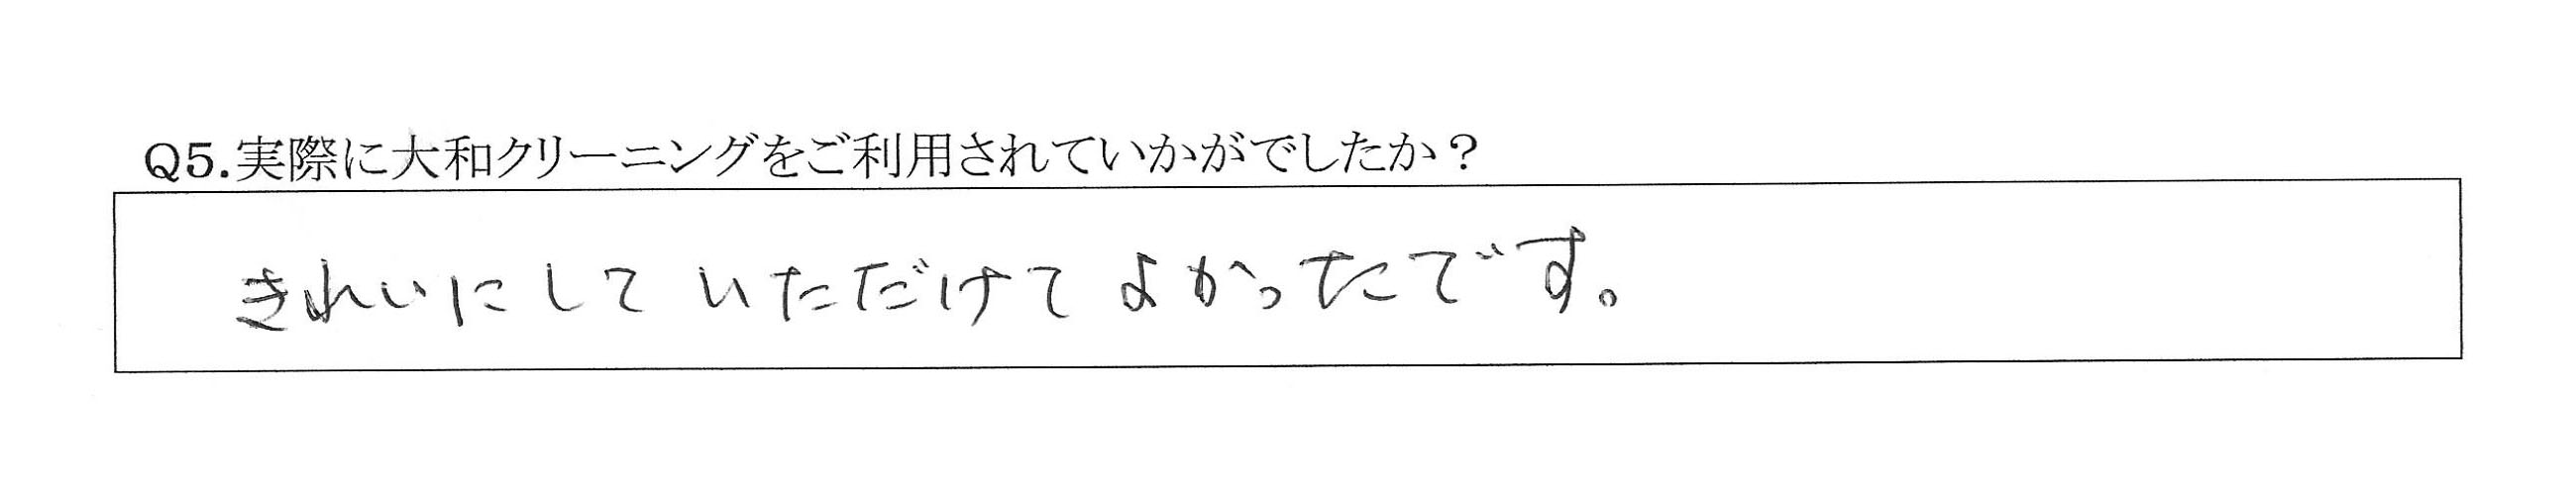 Q5.実際に大和クリーニングをご利用されていかがでしたか？
きれいにして いただけて よかったです。